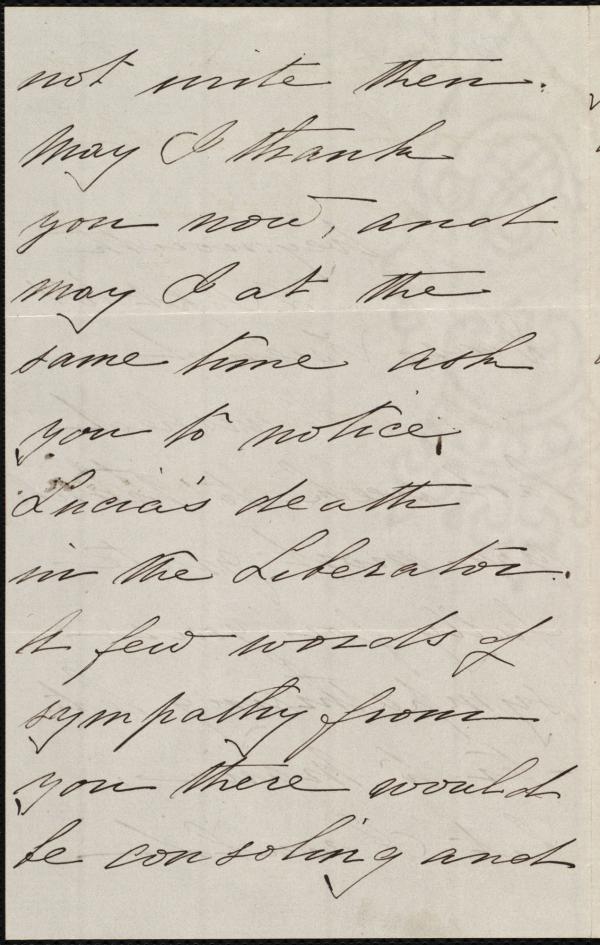 not write then.
May I thank
you now, and
may I at the
same time ask
you to notice
Lucia's death
in the Liberator.
A few words of
sympathy from
you there would
be consoling and